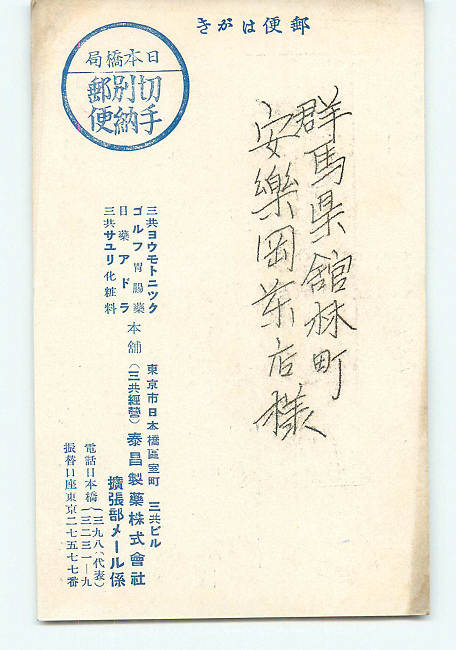 郵便はがき
日本橋局
切手
別納
郵便
群馬県舘林町
安樂岡店様
三共ヨウモトニツク
ゴルフ胃腸藥
日藥アドラ
三共サユリ化粧料
本舖
東京市日本橋區室町 三共ビル
(三共經營)泰昌製藥株式會社
擴張部メール係
電話日本橋
振替口座東京二七五七七番